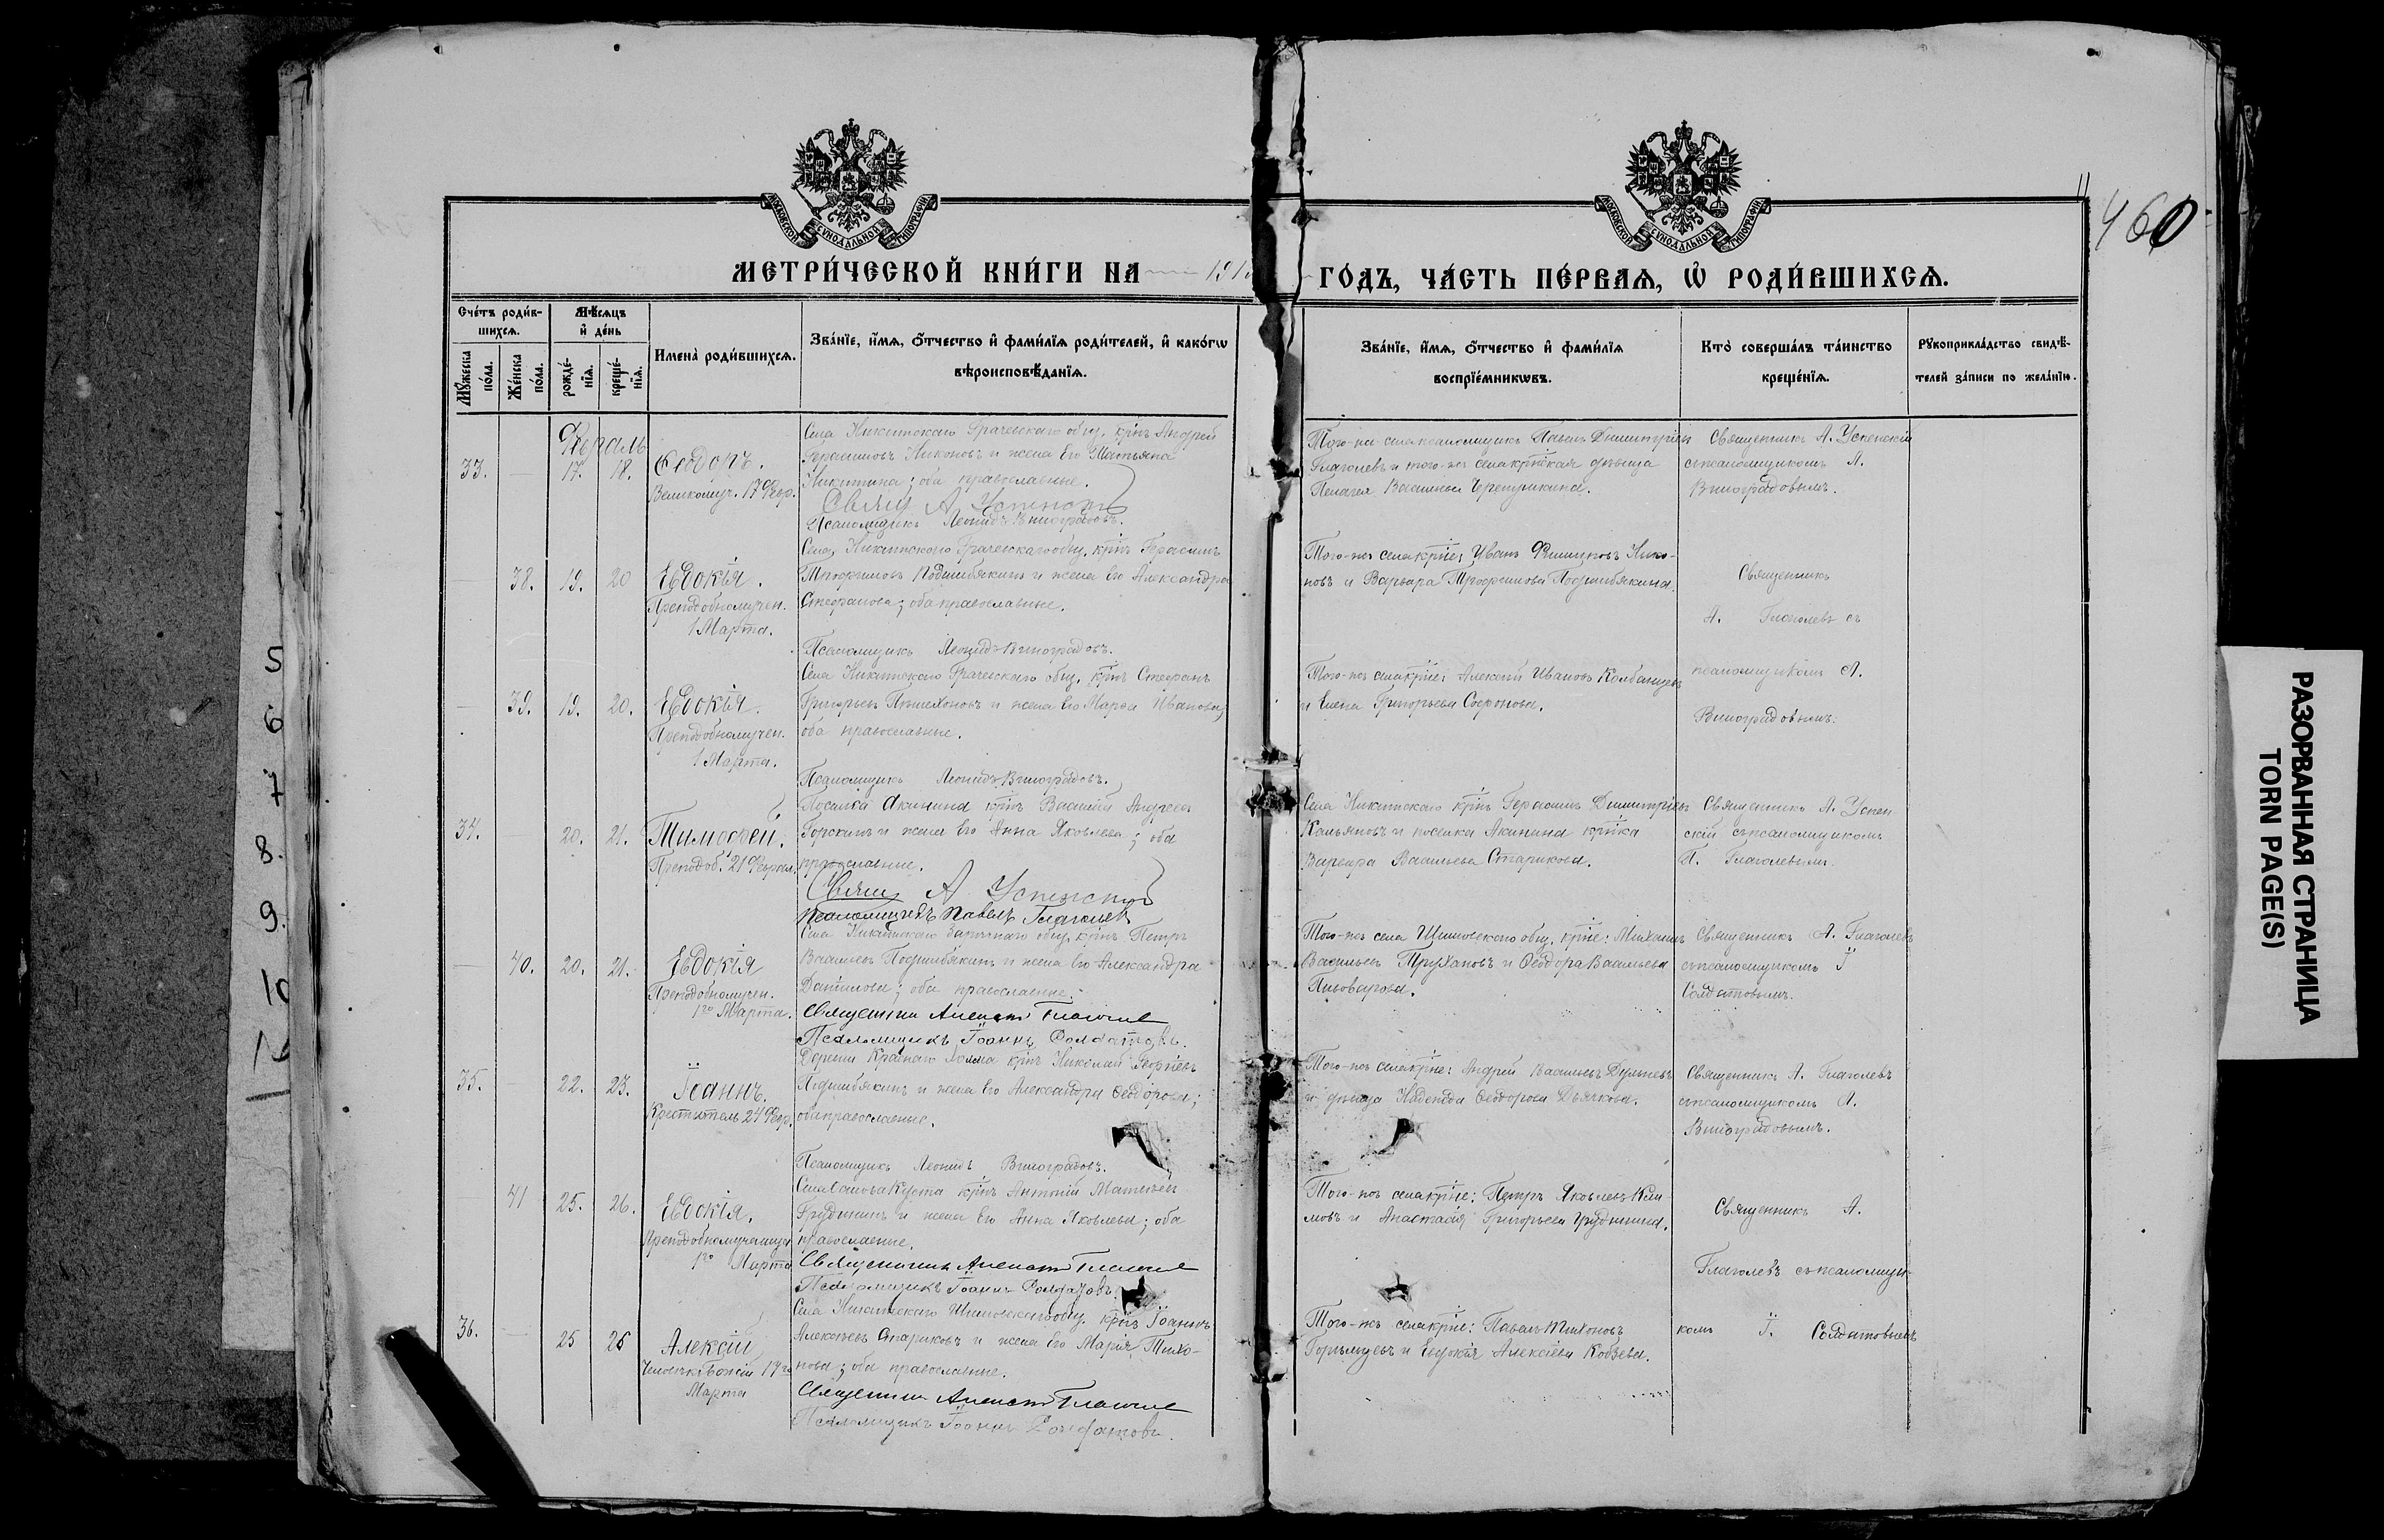 460
МОСКОВСКОЙ СѴНОДАЛЬНОЙ ТИПОГРАФІИ
МОСКОВСКОЙ СѴНОДАЛЬНОЙ ТИПОГРАФІИ
МЕТРИ́ЧЕСКОЙ КНИ́ГИ НА 191
ГО́ДЪ, ЧА́СТЬ ПЕ́РВАѦ, Ѿ РОДИ́ВШИХСѦ.
Сче́тъ роди́в-
шихсѧ.
Мꙋ́жеска по́ла.
Же́нска по́ла.
Мѣ́сѧцъ
и҆ де́нь
рожде́-
нїѧ.
креще́-
нїѧ.
Имена̀ роди́вшихсѧ.
Зва́нїе, и҆́мѧ, ѻ҆́тчество и҆ фами́лїѧ роди́телей, и҆ како́гѡ
вѣроисповѣ́данїѧ.
Зва́нїе, и҆́мѧ, ѻ҆́тчество и҆ фами́лїѧ
воспрїе́мникѡвъ.
Кто̀ соверша́лъ та́инство
креще́нїѧ.
Рꙋкоприкла́дство свидѣ́-
телей за́писи по жела́нїю.
Февраль
33. 17. 18. Ѳеодоръ.
Великомуч. 17 Февр.
Села Никитскаго Грачевскаго общ. кр҃нъ Андрей
Герасимовъ Никоновъ и жена Его Татьяна
Никитина; оба православные.
Свящ А Успенскій
Псаломщикъ Леонидъ Виноградовъ.
Того-же села псаломщикъ Павелъ Димитріевъ
Глаголевъ и того-же села кр҃нская дѣвица
Пелагея Васильева
Священникъ А. Успенскій
съ псаломщикомъ Л.
Виноградовымъ.
38. 19. 20 Евдокія.
Преподобномучен.
1 Марта.
Села Никитскаго Грачевскаго общ. кр҃нъ Герасимъ
Трофимовъ Подшибякинъ и жена Его Александра
Стефанова; оба православные.
Псаломщикъ Леонидъ Виноградовъ.
Того-же села кр҃не: Иванъ Филиповъ Нико-
новъ и Варвара Трофимова Подшибякина.
Священникъ
А. Глаголевъ съ
39. 19. 20. Евдокія.
Преподобномучен.
1 Марта.
Села Никитскаго Грачевскаго общ. кр҃нъ Стефанъ
Григорьевъ и жена Его Марѳа Иванова;
оба православные.
Псаломщикъ Леонидъ Виноградовъ.
Того-же села кр҃не: Алексѣй Ивановъ
и Елена Григорьева Софронова.
псаломщикомъ Л.
Виноградовымъ.
34. 20. 21. Тимоѳей.
Преподоб. 21 Феврал.
Поселка Акинина кр҃нъ Василій Андреевъ
Горскинъ и жена Его Анна Яковлева; оба
православные.
Свящ А Успенскій
Псаломщикъ Павелъ Глаголевъ
Села Никитскаго кр҃нъ Герасимъ Димитріевъ
Касьяновъ и поселка Акинина кр҃нка
Варвара Васильева Старикова.
Священникъ А. Успен
скій съ псаломщикомъ
П. Глаголевымъ.
40. 20. 21. Евдокія
Преподобномучен.
1го Марта.
Села Никитскаго общ. кр҃нъ Петръ
Васильевъ Подшибякинъ и жена Его Александра
Данилова; оба православные.
Священникъ Алексѣй Глаголевъ
Псаломщикъ Іоаннъ Солдатовъ.
Того-же села Шиповскаго общ. кр҃не: Михаилъ
Васильевъ Трухановъ и Ѳеодора Васильева
Пивоварова.
Священникъ А. Глаголевъ
съ псаломщикомъ І
Солдатовымъ.
35. 22. 23. Іоаннъ.
Креститель 24 Февр.
Деревни Краснаго Холма кр҃нъ Николай Георгіевъ
Подшибякинъ и жена Его Александра Ѳеодорова;
оба православные.
Псаломщикъ Леонидъ Виноградовъ.
Того-же села кр҃не: Андрей Васильевъ
и дѣвица Надежда Ѳеодорова Дьячкова.
Священникъ А. Глаголевъ
съ псаломщикомъ Л.
Виноградовымъ.
41 25. 26. Евдокія.
Преподобномученица
1го Марта
Села Самова Куста кр҃нъ Антоній Матвѣевъ
Груднинъ и жена Его Анна Яковлева; оба
православные.
Священникъ Алексѣй Глаголевъ
Псаломщикъ Іоаннъ Солдатовъ.
Того-же села кр҃не: Петръ Яковлевъ Кли-
мовъ и Анастасія Григорьева Груднина.
Священникъ А.
Глаголевъ съ псаломщи-
36. 25 26 Алексій
Человѣкъ Божій 17го
Марта
Села Никитскаго Шиповскаго общ. кр҃нъ Іоаннъ
Алексѣевъ Стариковъ и жена Его Марія Тихо-
нова; оба православные.
Священникъ Алексѣй Глаголевъ
Псаломщикъ Іоаннъ Солдатовъ.
Того-же села кр҃не: Павелъ Тихоновъ
и Евдокія Алексѣева Кобзева.
комъ І. Солдатовымъ
5
6
7
8.
9.
10
РАЗОРВАННАЯ СТРАНИЦА
TORN PAGE(S)